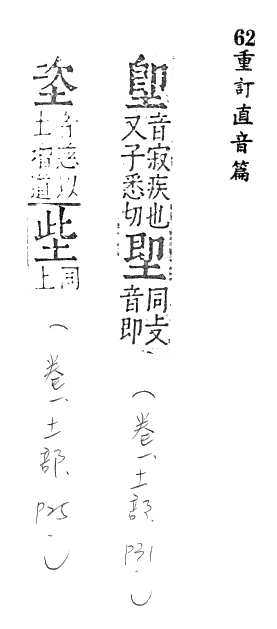 62重訂直音篇
堲音寂疾也又子悉切堲同上又音即
(卷一土部 P31.)
垐以土道㘹同上
(卷一土部 P25.)